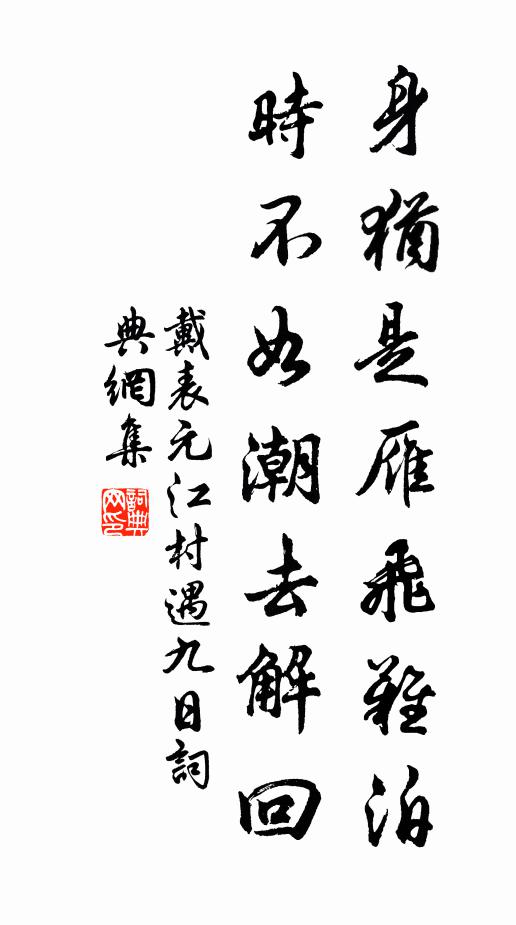 身猶是雁飛難泊
時不如潮去解回
戴表元江村遇九日詞
典網集
詞典网印